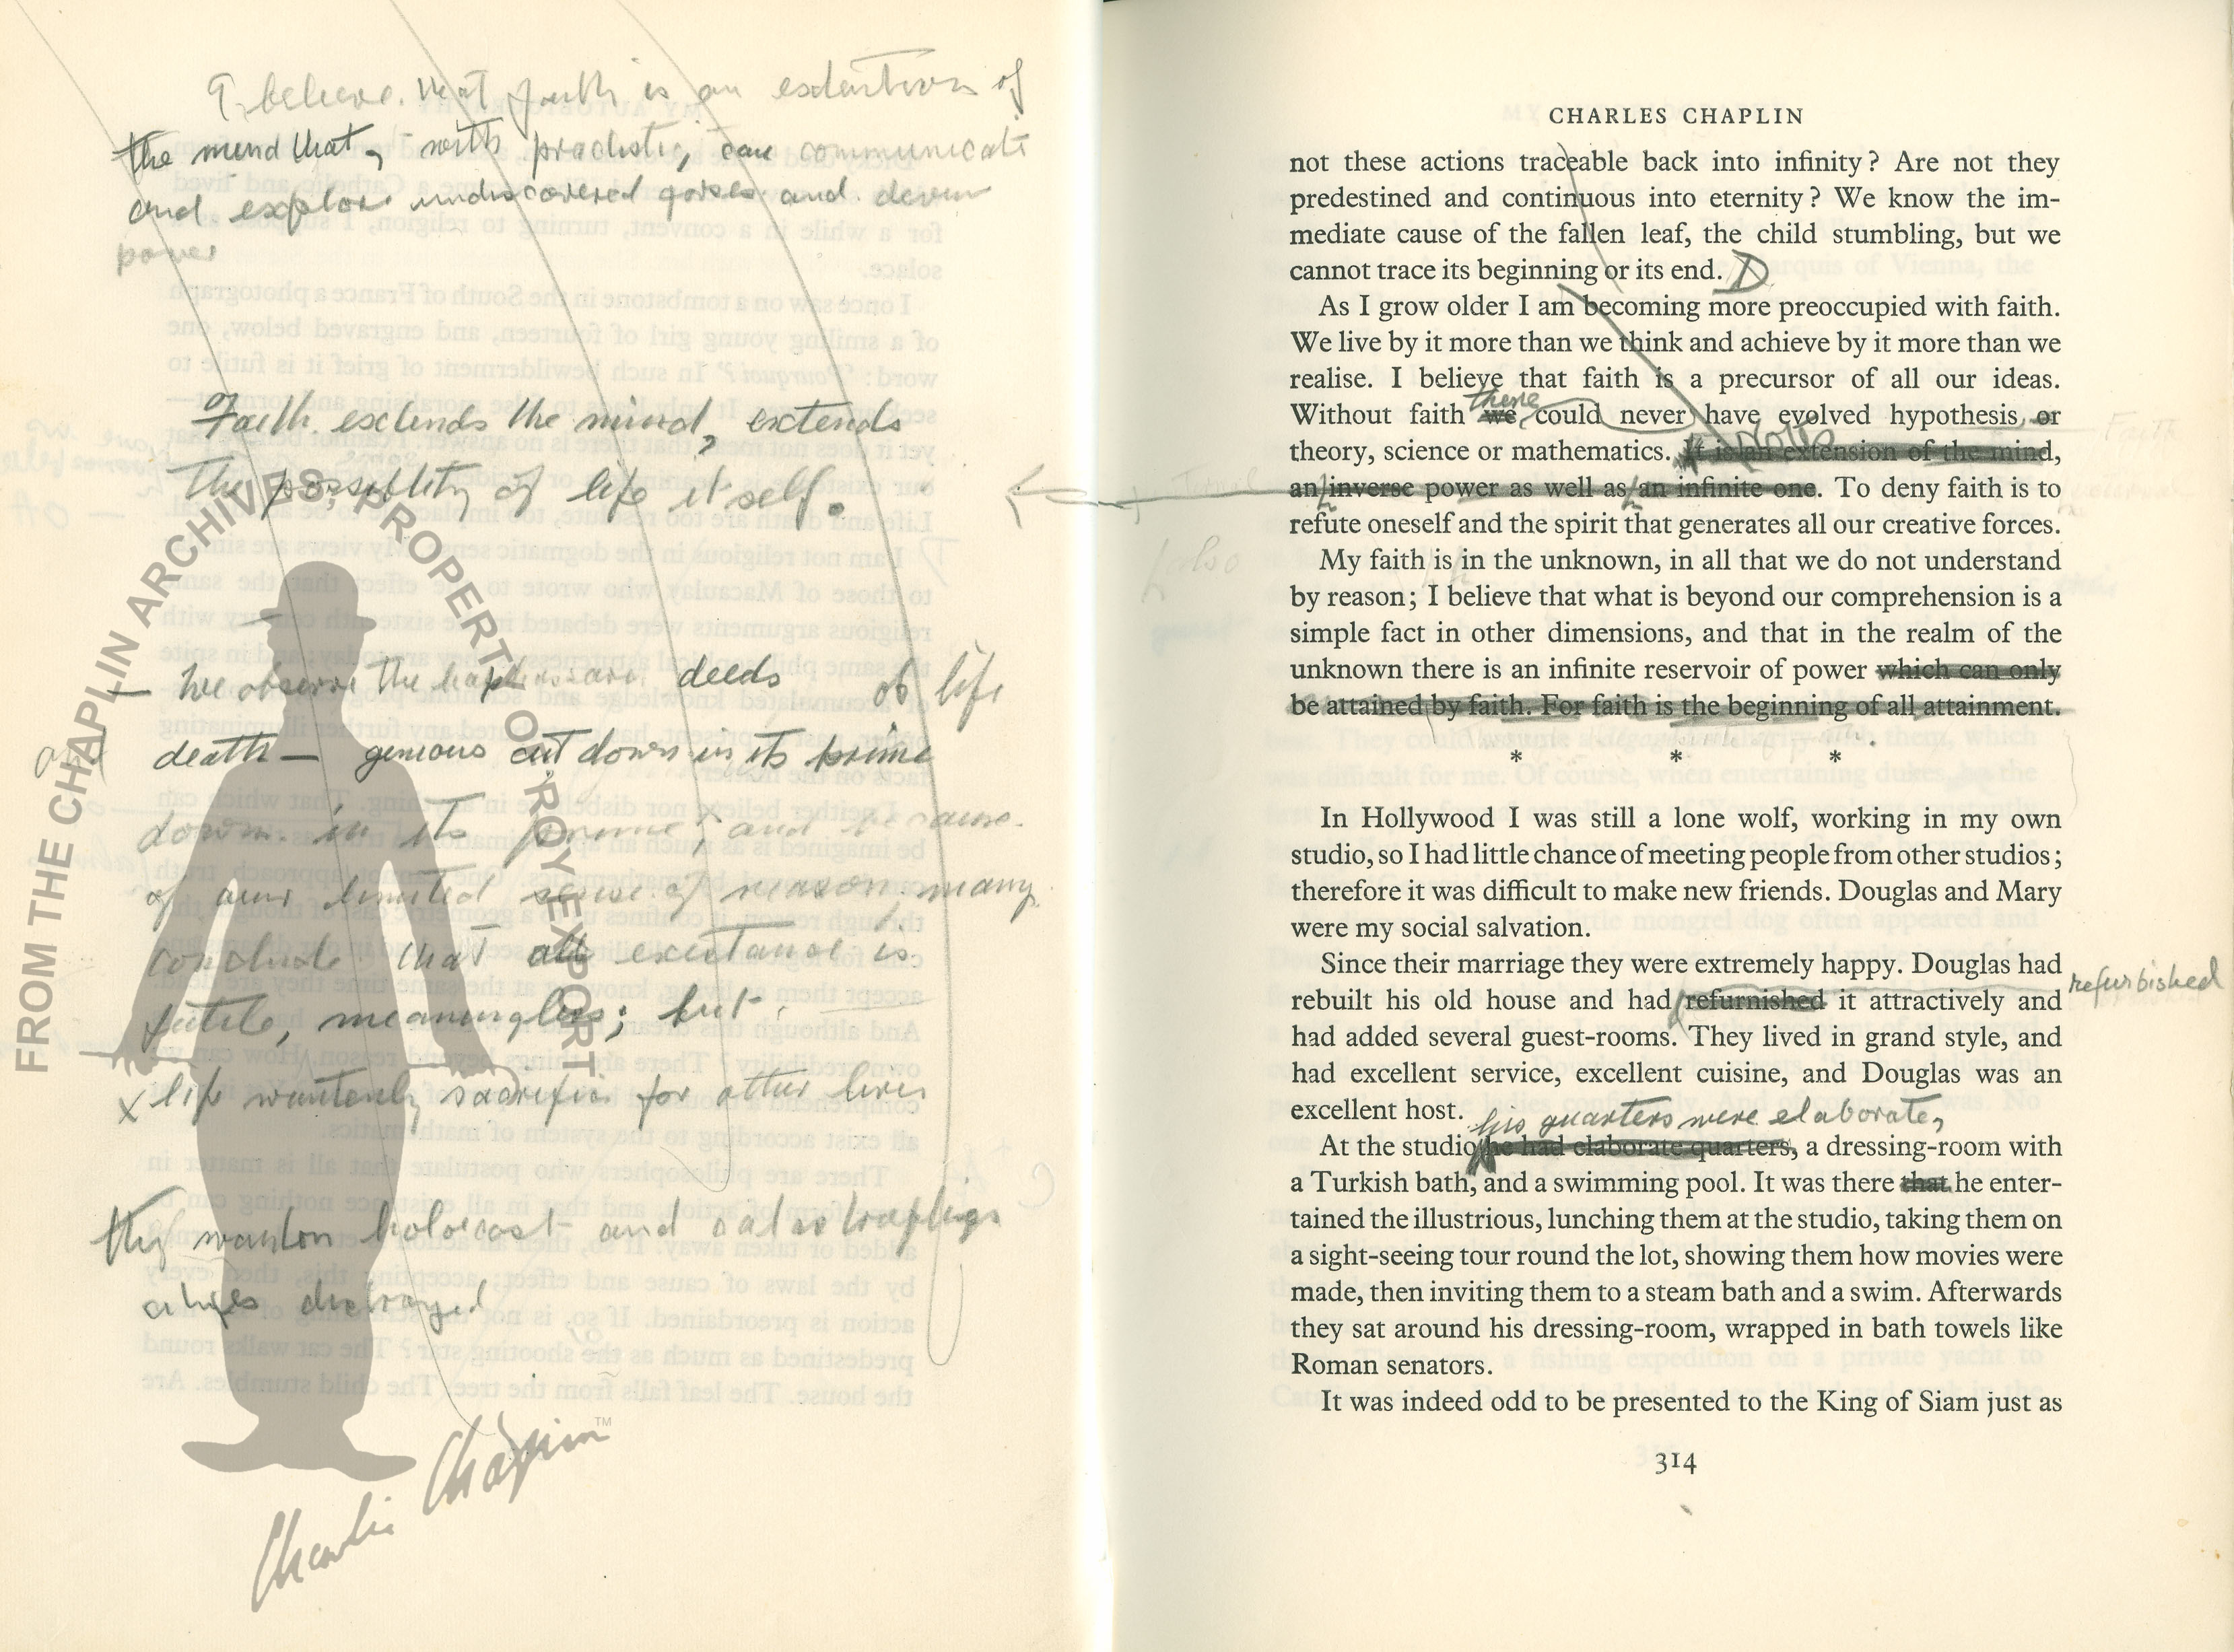 I believe that faith is an extention of
the mind that, with practistic, can communicate
and explore undiscovered forses and
power
Faith extends the mind, extends
the possiblity of life itself.
— We observe the deeds of life
and death — genious cut down in its prime
down in its prime, and because
of our limited sense of reason, many
conclude that all existance is
futele, meaningless; but
x life wantenly sacrifice for other lives
the wanton holocost and
destroyed
FROM THE CHAPLIN ARCHIVES. PROPERTY OF ROY EXPORT
Charlie Chaplin™
CHARLES CHAPLIN
not these actions traceable back into infinity? Are not they
predestined and continuous into eternity? We know the im-
mediate cause of the fallen leaf, the child stumbling, but we
cannot trace its beginning or its end. D
As I grow older I am becoming more preoccupied with faith.
We live by it more than we think and achieve by it more than we
realise. I believe that faith is a precursor of all our ideas.
there
Without faith we could never have evolved hypothesis, or
Faith
notes
theory, science or mathematics. It is an extension of the mind,
an inverse power as well as an infinite one. To deny faith is to
refute oneself and the spirit that generates all our creative forces.
also
My faith is in the unknown, in all that we do not understand
by reason; I believe that what is beyond our comprehension is a
simple fact in other dimensions, and that in the realm of the
unknown there is an infinite reservoir of power which can only
be attained by faith. For faith is the beginning of all attainment.
* * *
In Hollywood I was still a lone wolf, working in my own
studio, so I had little chance of meeting people from other studios;
therefore it was difficult to make new friends. Douglas and Mary
were my social salvation.
Since their marriage they were extremely happy. Douglas had
rebuilt his old house and had refurnished it attractively and
refurbished
had added several guest-rooms. They lived in grand style, and
had excellent service, excellent cuisine, and Douglas was an
excellent host.
his quarters were elaborate,
At the studio he had elaborate quarters, a dressing-room with
a Turkish bath, and a swimming pool. It was there that he enter-
tained the illustrious, lunching them at the studio, taking them on
a sight-seeing tour round the lot, showing them how movies were
made, then inviting them to a steam bath and a swim. Afterwards
they sat around his dressing-room, wrapped in bath towels like
Roman senators.
It was indeed odd to be presented to the King of Siam just as
314